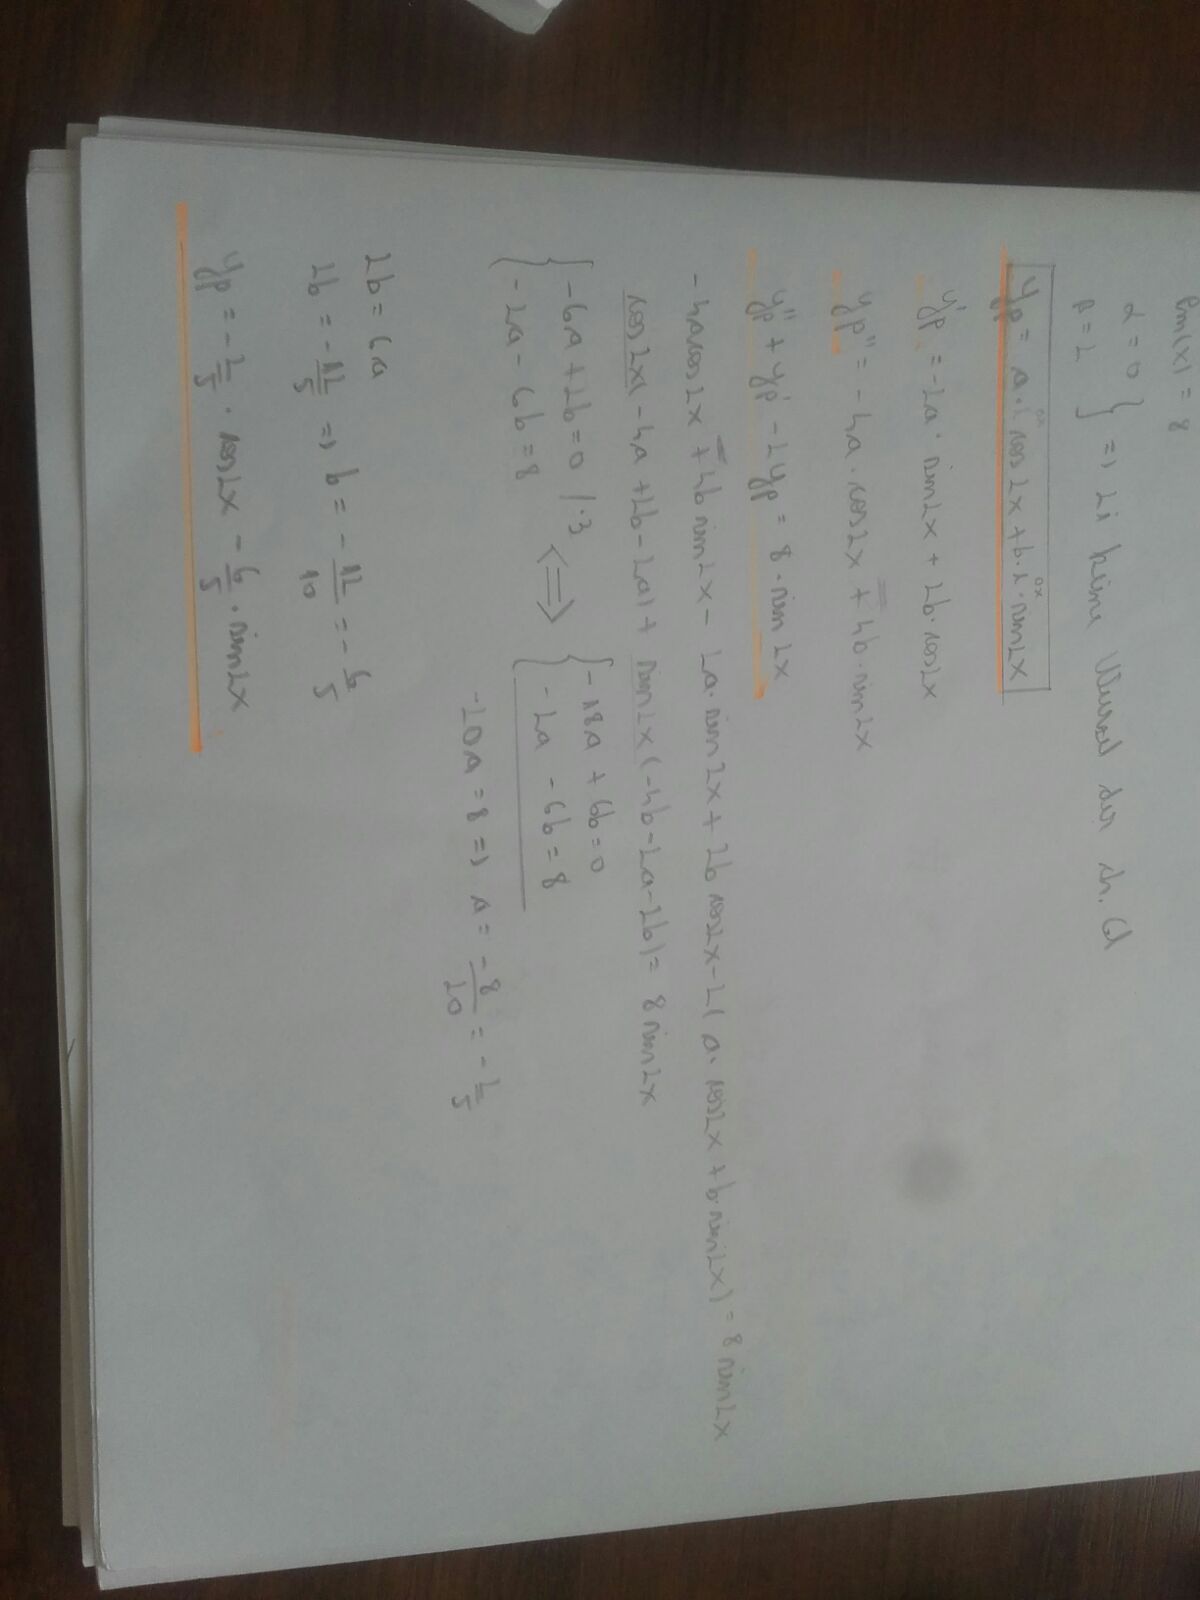 Pm(x) = 8
α = 0
β = 2 } => 2i keine Wurzel der ch. Gl
yp = a·e^0x cos 2x + b·e^0x·sin 2x
yp' = -2a · sin 2x + 2b·cos 2x
yp'' = -4a · cos 2x - 4b·sin 2x
yp'' + yp' - 2yp = 8·sin 2x
-4a cos 2x - 4b sin 2x - 2a·sin 2x + 2b cos 2x - 2(a·cos 2x + b·sin 2x) = 8 sin 2x
cos 2x(-4a + 2b - 2a) + sin 2x(-4b - 2a - 2b) = 8 sin 2x
{ -6a + 2b = 0 /·3 <=> { -18a + 6b = 0
-2a - 6b = 8 -2a - 6b = 8
-20a = 8 => a = -8/20 = -2/5
2b = 6a
2b = -12/5 => b = -12/10 = -6/5
yp = -2/5 · cos 2x - 6/5 · sin 2x